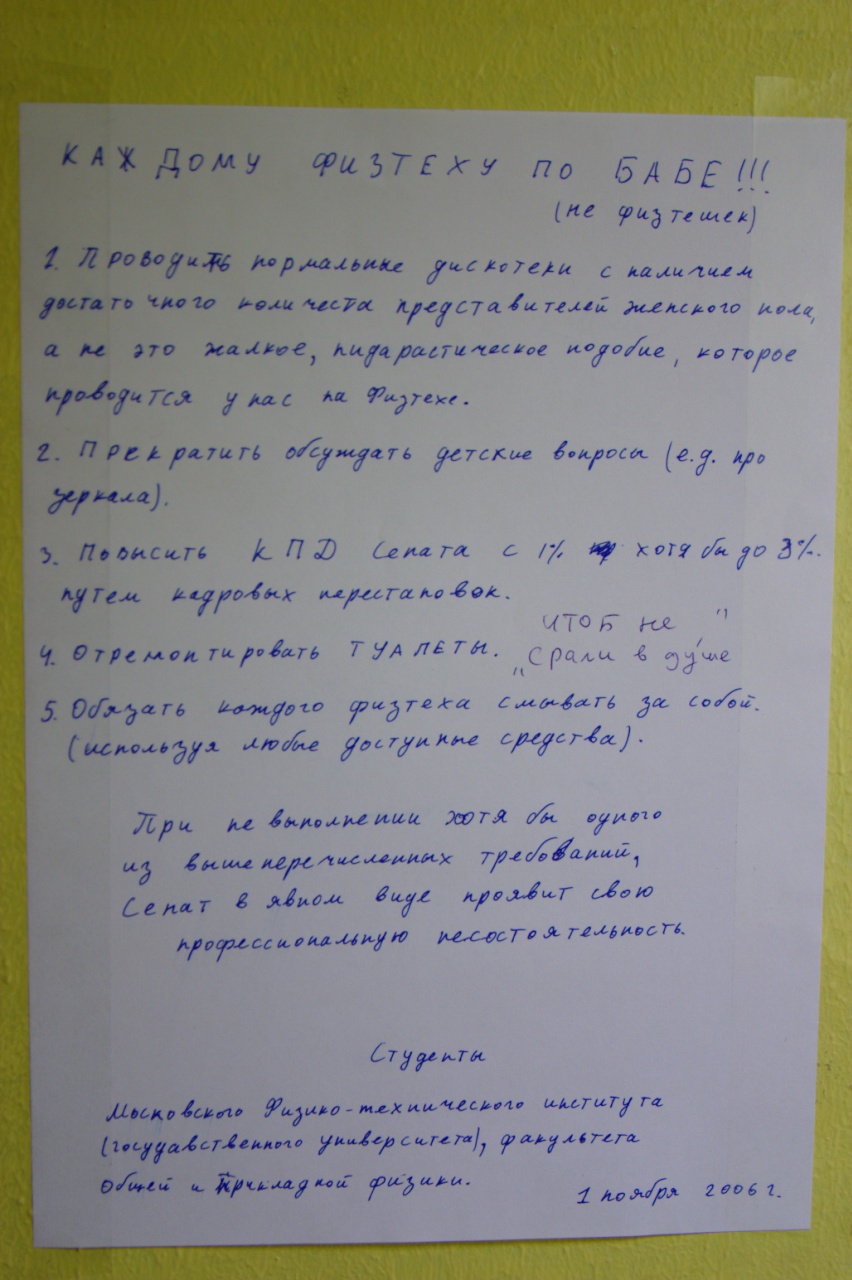 КАЖДОМУ ФИЗТЕХУ ПО БАБЕ!!!
(не физтешек)
1. Проводить нормальные дискотеки с наличием
достаточного количеста представителей женского пола,
а не это жалкое, пидарастическое подобие, которое
проводится у нас на Физтехе.
2. Прекратить обсуждать детские вопросы (е.д. про
зеркала).
3. Повысить КПД Сената с 1% хотя бы до 3%.
путем кадровых перестановок.
4. Отремонтировать ТУАЛЕТЫ.
чтоб не "
„срали в душе
5. Обязать каждого физтеха смывать за собой.
(используя любые доступные средства).
При не выполнении хотя бы одного
из вышеперечисленных требований,
Сенат в явном виде проявит свою
профессиональную несостоятельность.
Студенты
Московского Физико-технического института
(государственного университета), факультета
Общей и Прикладной физики.
1 ноября 2006 г.